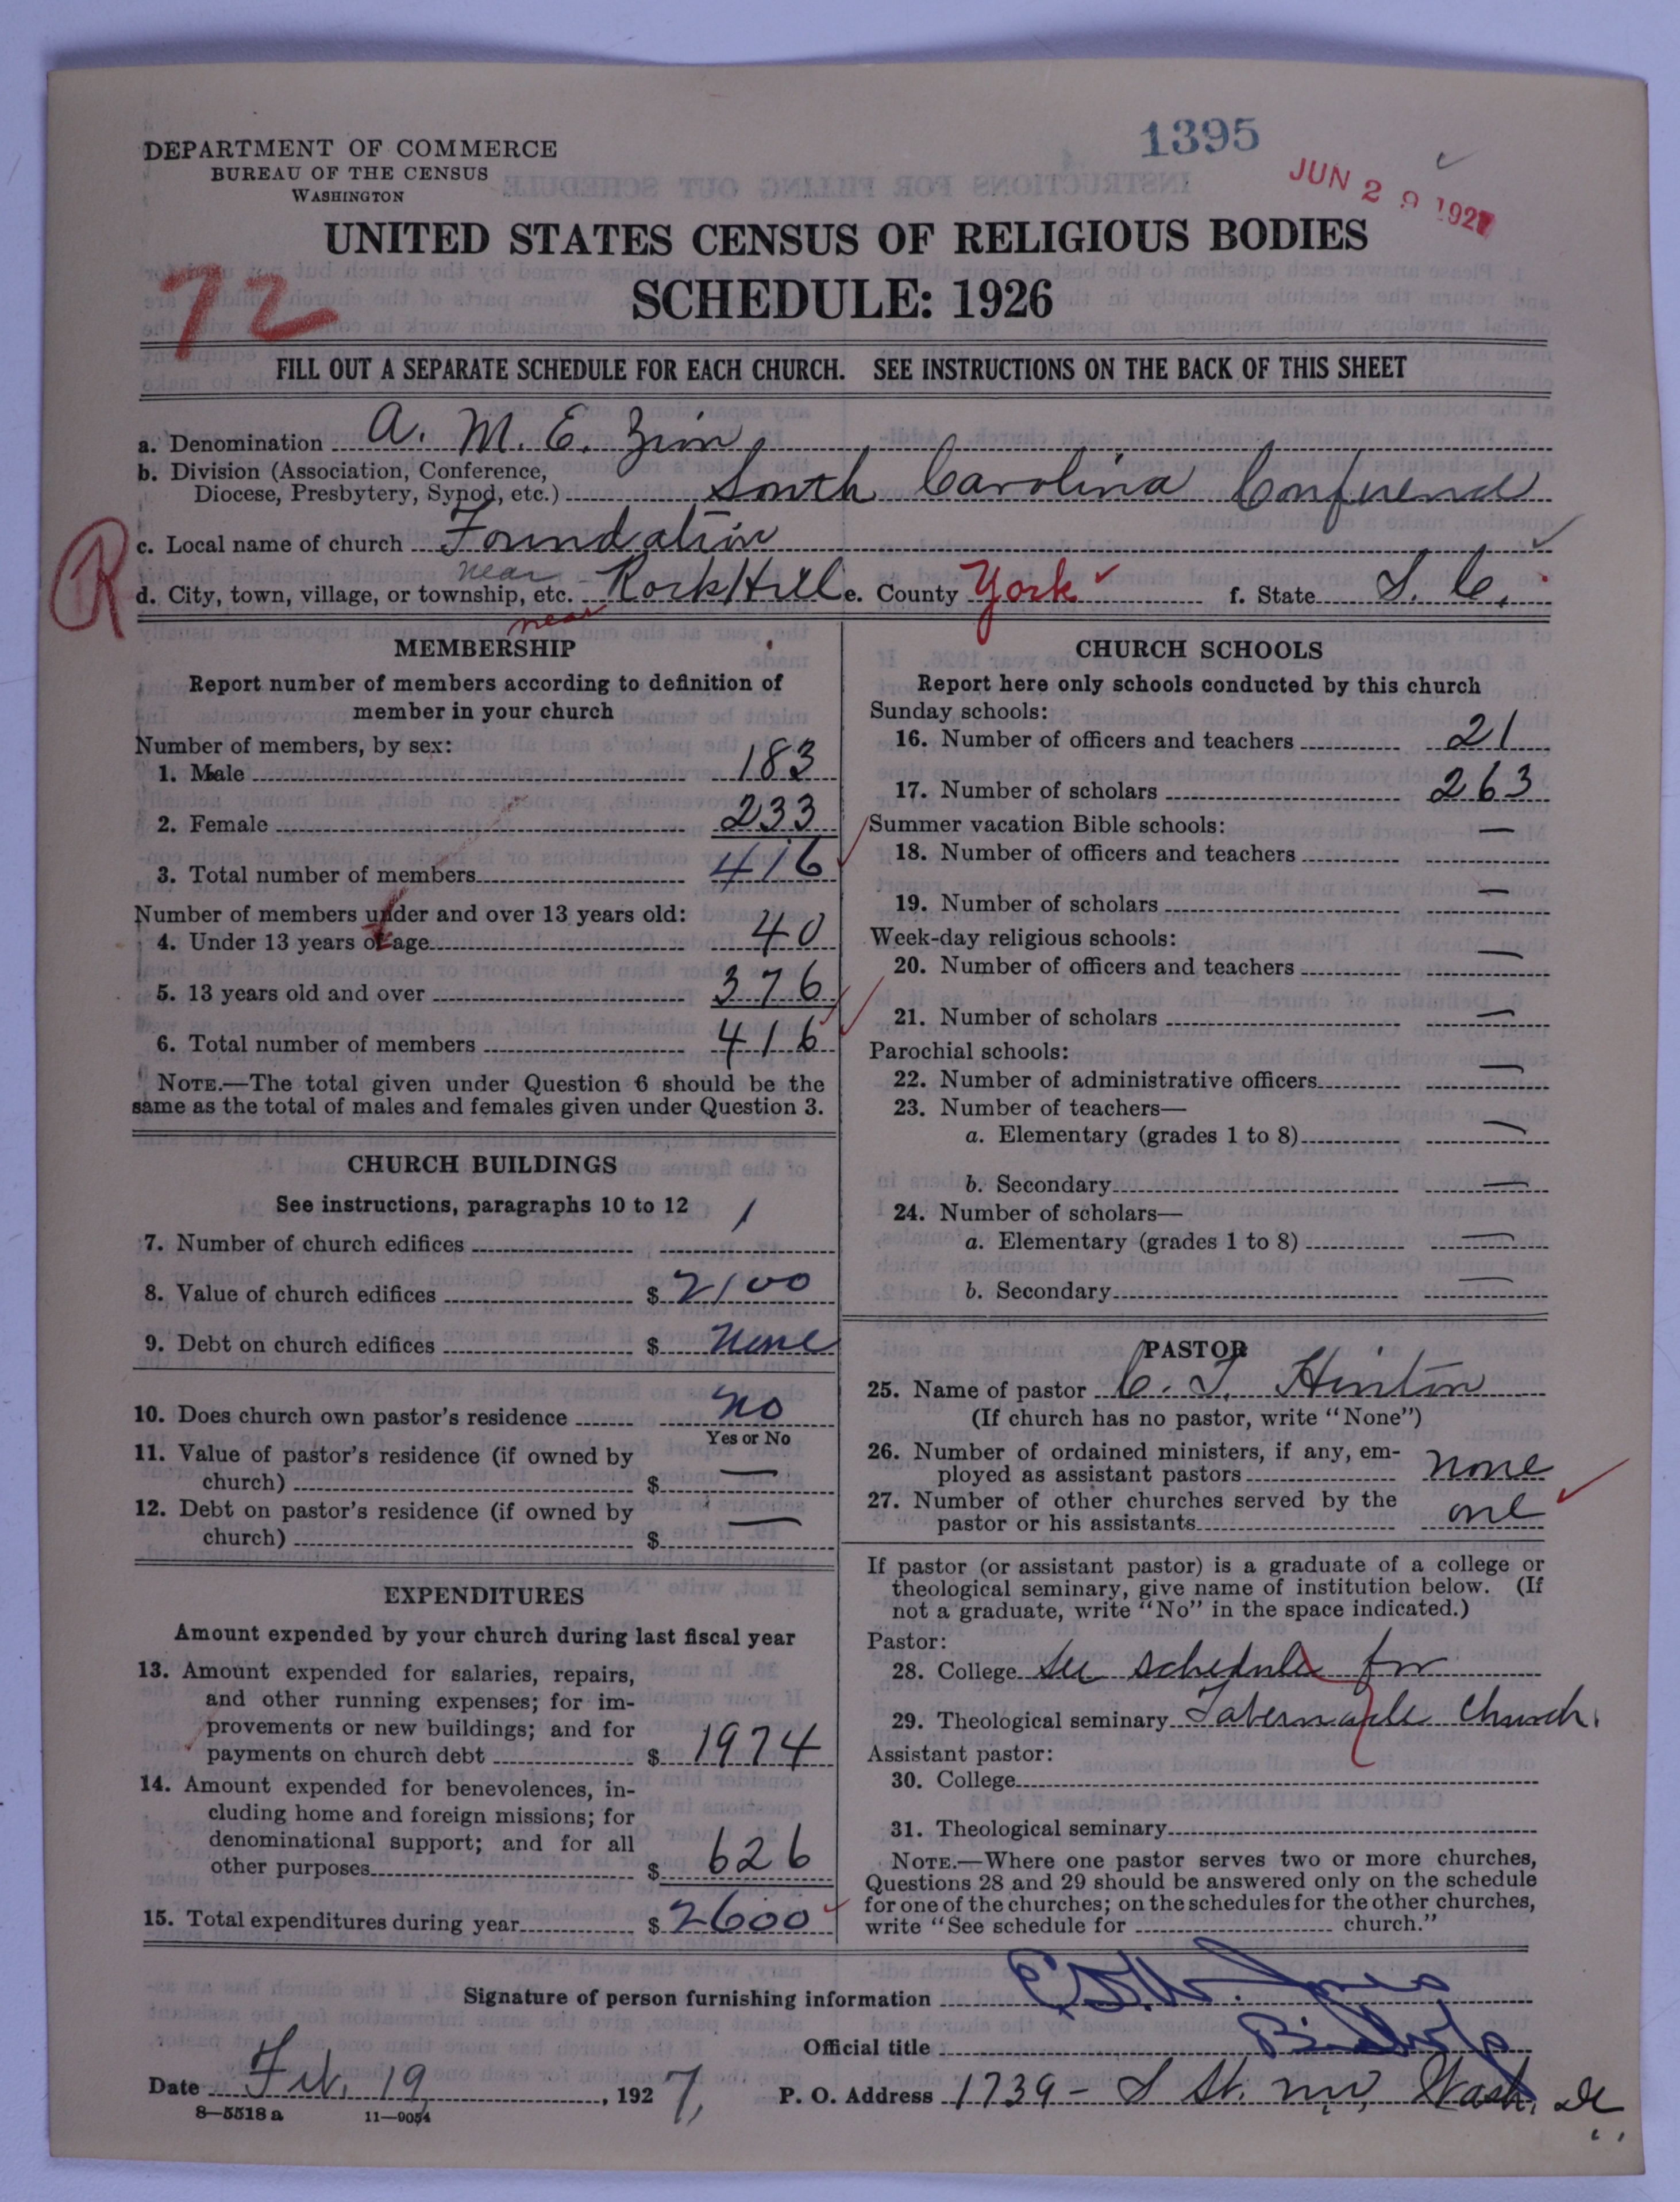 1395
JUN 29 1927
DEPARTMENT OF COMMERCE
BUREAU OF THE CENSUS
WASHINGTON
UNITED STATES CENSUS OF RELIGIOUS BODIES
SCHEDULE: 1926
72
FILL OUT A SEPARATE SCHEDULE FOR EACH CHURCH. SEE INSTRUCTIONS ON THE BACK OF THIS SHEET
a. Denomination A. M. E. Zion
b. Division (Association, Conference,
Diocese, Presbytery, Synod, etc.) South Carolina Conference
c. Local name of church Foundation
R
near
d. City, town, village, or township, etc. Rock Hill e. County York f. State S. C.
near
MEMBERSHIP
Report number of members according to definition of
member in your church
Number of members, by sex:
1. Male 183
2. Female 233
3. Total number of members 416
Number of members under and over 13 years old:
4. Under 13 years of age 40
5. 13 years old and over 376
6. Total number of members 416
NOTE.—The total given under Question 6 should be the
same as the total of males and females given under Question 3.
CHURCH BUILDINGS
See instructions, paragraphs 10 to 12
7. Number of church edifices 1
8. Value of church edifices $ 2100
9. Debt on church edifices $ None
10. Does church own pastor's residence No
Yes or No
11. Value of pastor's residence (if owned by
church) $ —
12. Debt on pastor's residence (if owned by
church) $ —
EXPENDITURES
Amount expended by your church during last fiscal year
13. Amount expended for salaries, repairs,
and other running expenses; for im-
provements or new buildings; and for
payments on church debt $ 1974
14. Amount expended for benevolences, in-
cluding home and foreign missions; for
denominational support; and for all
other purposes $ 626
15. Total expenditures during year $ 2600
CHURCH SCHOOLS
Report here only schools conducted by this church
Sunday schools:
16. Number of officers and teachers 21
17. Number of scholars 263
Summer vacation Bible schools:
18. Number of officers and teachers —
19. Number of scholars —
Week-day religious schools:
20. Number of officers and teachers —
21. Number of scholars —
Parochial schools:
22. Number of administrative officers —
23. Number of teachers—
a. Elementary (grades 1 to 8) —
b. Secondary —
24. Number of scholars—
a. Elementary (grades 1 to 8) —
b. Secondary —
PASTOR
25. Name of pastor C. T. Hinton
(If church has no pastor, write "None")
26. Number of ordained ministers, if any, em-
ployed as assistant pastors none
27. Number of other churches served by the
pastor or his assistants one
If pastor (or assistant pastor) is a graduate of a college or
theological seminary, give name of institution below. (If
not a graduate, write "No" in the space indicated.)
Pastor:
28. College See schedule for
29. Theological seminary Tabernacle Church.
Assistant pastor:
30. College
31. Theological seminary
NOTE.—Where one pastor serves two or more churches,
Questions 28 and 29 should be answered only on the schedule
for one of the churches; on the schedules for the other churches,
write "See schedule for church."
Signature of person furnishing information
Official title Bishop
Date Feb. 19, 1927, P. O. Address 1739 - S St. N.W. Wash, DC
8—5518 a 11—9054